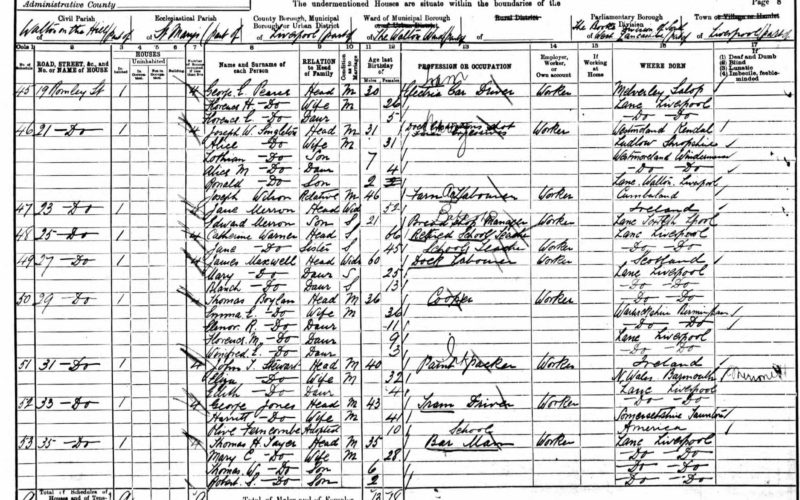 Administrative County
The undermentioned Houses are situate within the boundaries of the
Page 8
Civil Parish
Ecclesiastical Parish
County Borough, Municipal Borough or Urban District
Ward of Municipal Borough or
Rural District
Parliamentary Borough or Division of
Town or Village or Hamlet
Walton on the Hill part of
St Marys part of
Liverpool part of
The Walton Ward part of
Liverpool part of
Cols 1 2 3 4 5 6 7 8 9 10 11 12 13 14 15 16 17
No. of
ROAD, STREET, &c., and No. or NAME of HOUSE
HOUSES
Inhabited
Uninhabited
Building
Name and Surname of each Person
RELATION to Head of Family
Condition as to Marriage
Age last Birthday of
PROFESSION OR OCCUPATION
Employer, Worker, or Own account
If Working at Home
WHERE BORN
(1) Deaf and Dumb
(2) Blind
(3) Lunatic
(4) Imbecile, feeble-minded
45 19 Romley St 1 George E. Head M 30 Electric Car Driver Worker Melverley Salop
Florence H. Do Wife M 26 Lanc Liverpool
Florence E. Do Daur 5 Do Do
46 21 Do 1 Joseph W. Singleton Head M 31 Worker Westmorland Kendal
Alice Do Wife M 31 Ludlow Shropshire
Lothian Do Son 7 Westmoreland Windermere
Alice M. Do Daur 4 Do Do
Ronald Do Son 2 Lanc. Walton, Liverpool
Joseph Wilson Relative M 46 Farm Labourer Worker Cumberland
47 23 Do 1 Jane Merron Head Wid 52 Ireland
Edward Merron Son S 21 Bread Shop Manager Worker Lanc
48 25 Do 1 Catherine Warner Head S 56 Retired School Teacher Lanc Liverpool
Jane Do Sister S 45 Schools Teacher Worker Do Do
49 27 Do 1 James Maxwell Head Widr 60 Dock Labourer Worker Scotland
Mary Do Daur S 25 Lanc Liverpool
Blanch Do Daur S 13 Do Do
50 29 Do 1 Thomas Boylan Head M 36 Cooper Worker Do Do
Emma E. Do Wife M 36 Warwickshire Birmingham
Elanor R. Do Daur 11 Do Do
Florence M. Do Daur 9 Lanc Liverpool
Winifred E. Do Daur 3 Do Do
51 31 Do 1 John J. Stewart Head M 40 Paint packer Worker Ireland
Do Wife M 32 N. Wales Barmouth
Edith Do Daur 4 Lanc Liverpool
52 33 Do 1 George Jones Head M 43 Tram Driver Worker Do Do
Harriett Do Wife M 41 Somersetshire Taunton
Olive Adopted 10 School America
53 35 Do 1 Thomas H. Head M 35 Bar Man Worker Lanc Liverpool
Mary E. Do Wife M 28 Do Do
Thomas W. Do Son 6 Do Do
Robert S. Do Son 2 Do Do
Total of Schedules of Houses and of
Total of Males and of Females